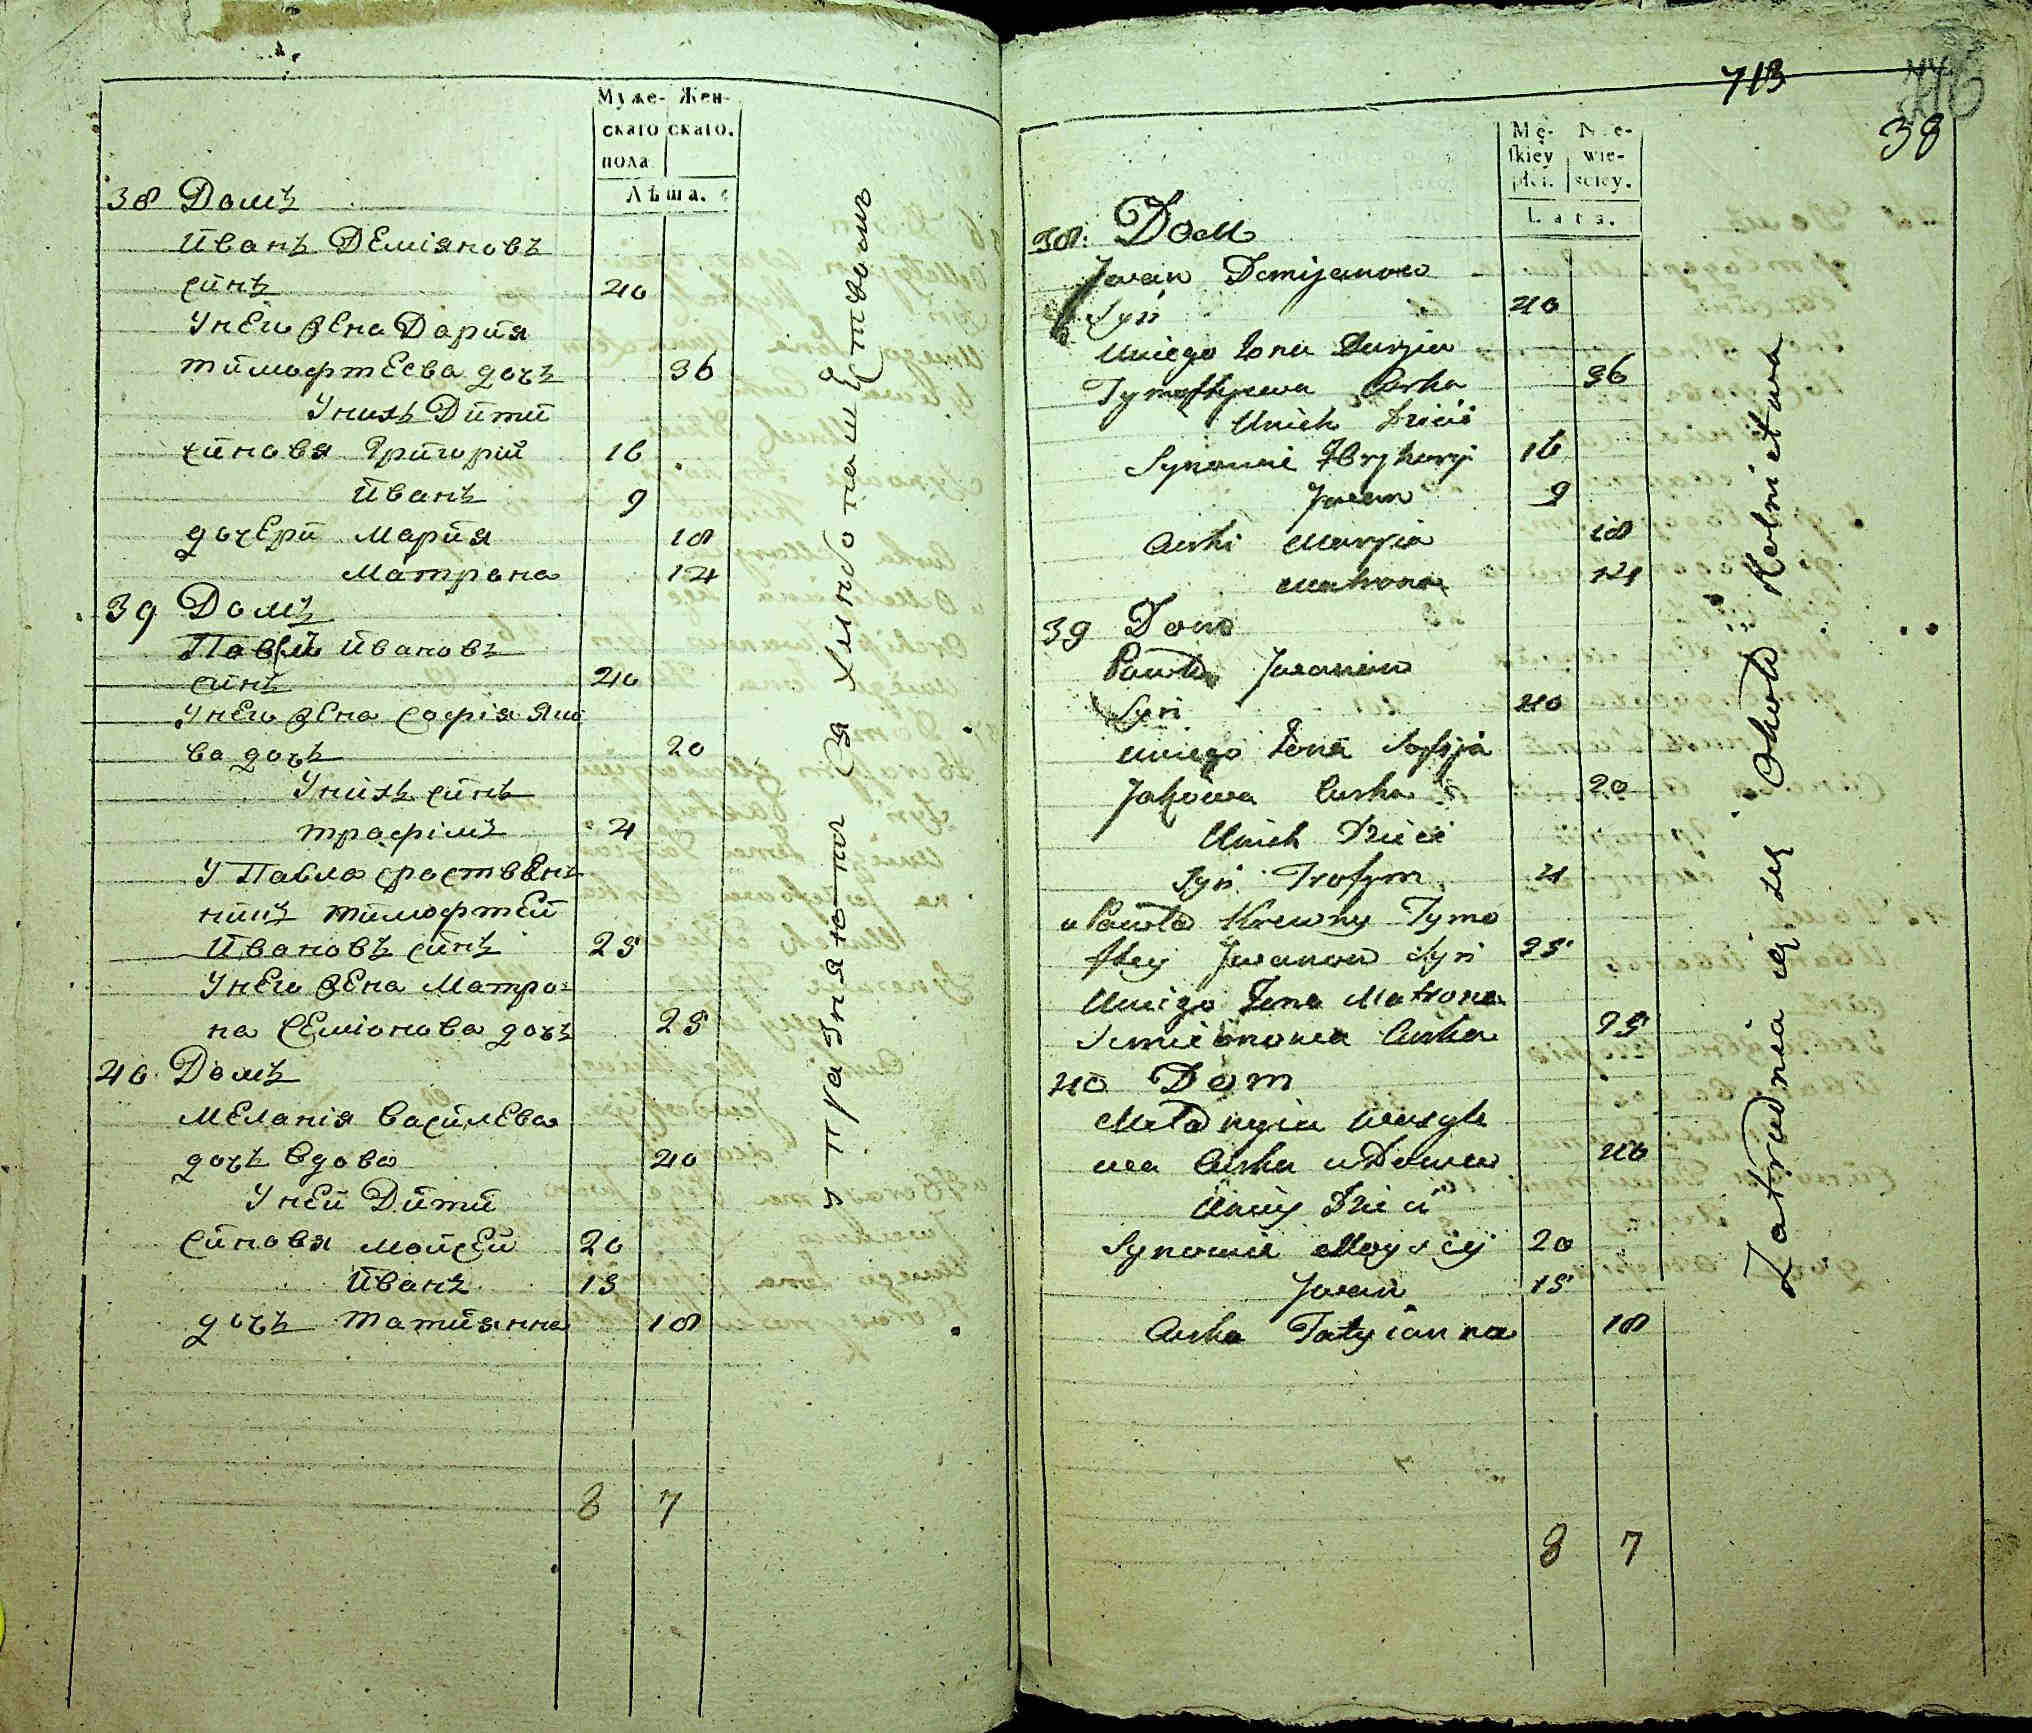 Муже- Жен-
скаго скаго.
пола
Лѣта.
38 Домъ
Иванъ Деміяновъ
синъ 40
Унего жена Дария
тимофтеева дочъ 36
Унихъ Дити
синовя Григорій 16
Иванъ 9
дочери Мария 18
Матрона 14
39 Домъ
Павел Ивановъ
синъ 40
Унего жена Софія Яко
ва дочъ 20
Унихъ синъ
трафімъ 4
У Павла сроствен
никъ тимофтей
Ивановъ синъ 25
Унего жена Матро=
на Семіонова дочъ 25
40 Домъ
Меланія василева
дочъ вдова 40
Уней Дити
Синовя мойсей 20
Иванъ 15
дочъ татиянна 18
8 7
упражняются хлибопашеством
713
38
Mę- Nie-
skiey wie-
płci. sciey.
Lata.
38: Dom
Jwan Demijanow
Syn 40
Uniego żona Daryia
Tymoftyiewa Curka 36
Unich Dzieci
Synowie Hryhory 16
Jwan 9
Curki Maryia 18
Matrona 14
39 Dom
Pawło Jwanow
Syn 40
Uniego żona Sofyja
Jakowa Curka 20
Unich Dzieci
Syn Trofym 4
u Pawła Krewny Tymo
ftey Jwanow Syn 25
Uniego żona Matrona
Semionowa Curka 25
40 Dom
Mełanyia Wasyle
wa Curka wdowa 40
Uniey Dzieci
Synowie Moysiey 20
Jwan 15
Curka Tatyianna 18
8 7
Zatrudnia ią się Około Rolnictwa